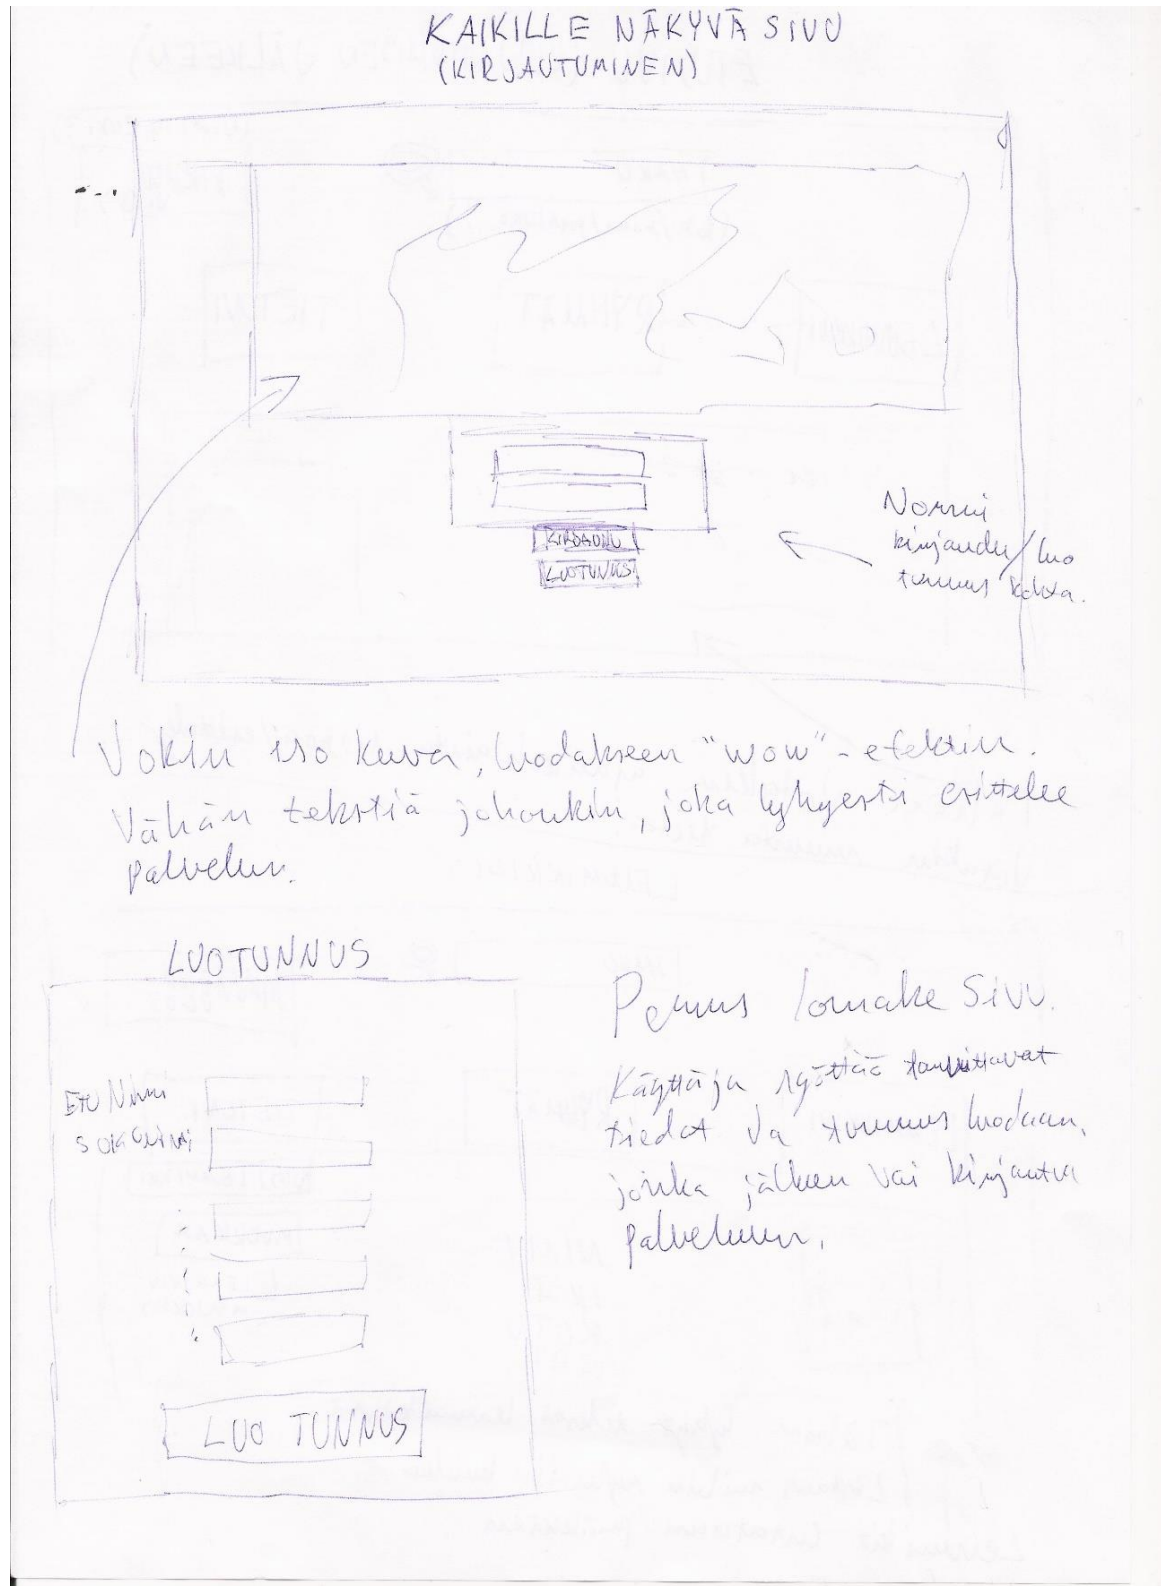 KAIKILLE NÄKYVÄ SIVU
(KIRJAUTUMINEN)
KIRJAUDU
LUOTUNNUS
Normi
kirjaudu/luo
tunnus kohta.
Jokin iso kuva, luodakseen "wow"-efektin.
Vähän tekstiä johonkin, joka lyhyesti erittelee
palvelun.
LUOTUNNUS
Perus lomake sivu.
Käyttäjä syöttää tarvittavat
tiedot ja tunnus luodaan,
jonka jälkeen voi kirjautua
palveluun.
ETU Nimi
SUKUNIMI
LUO TUNNUS